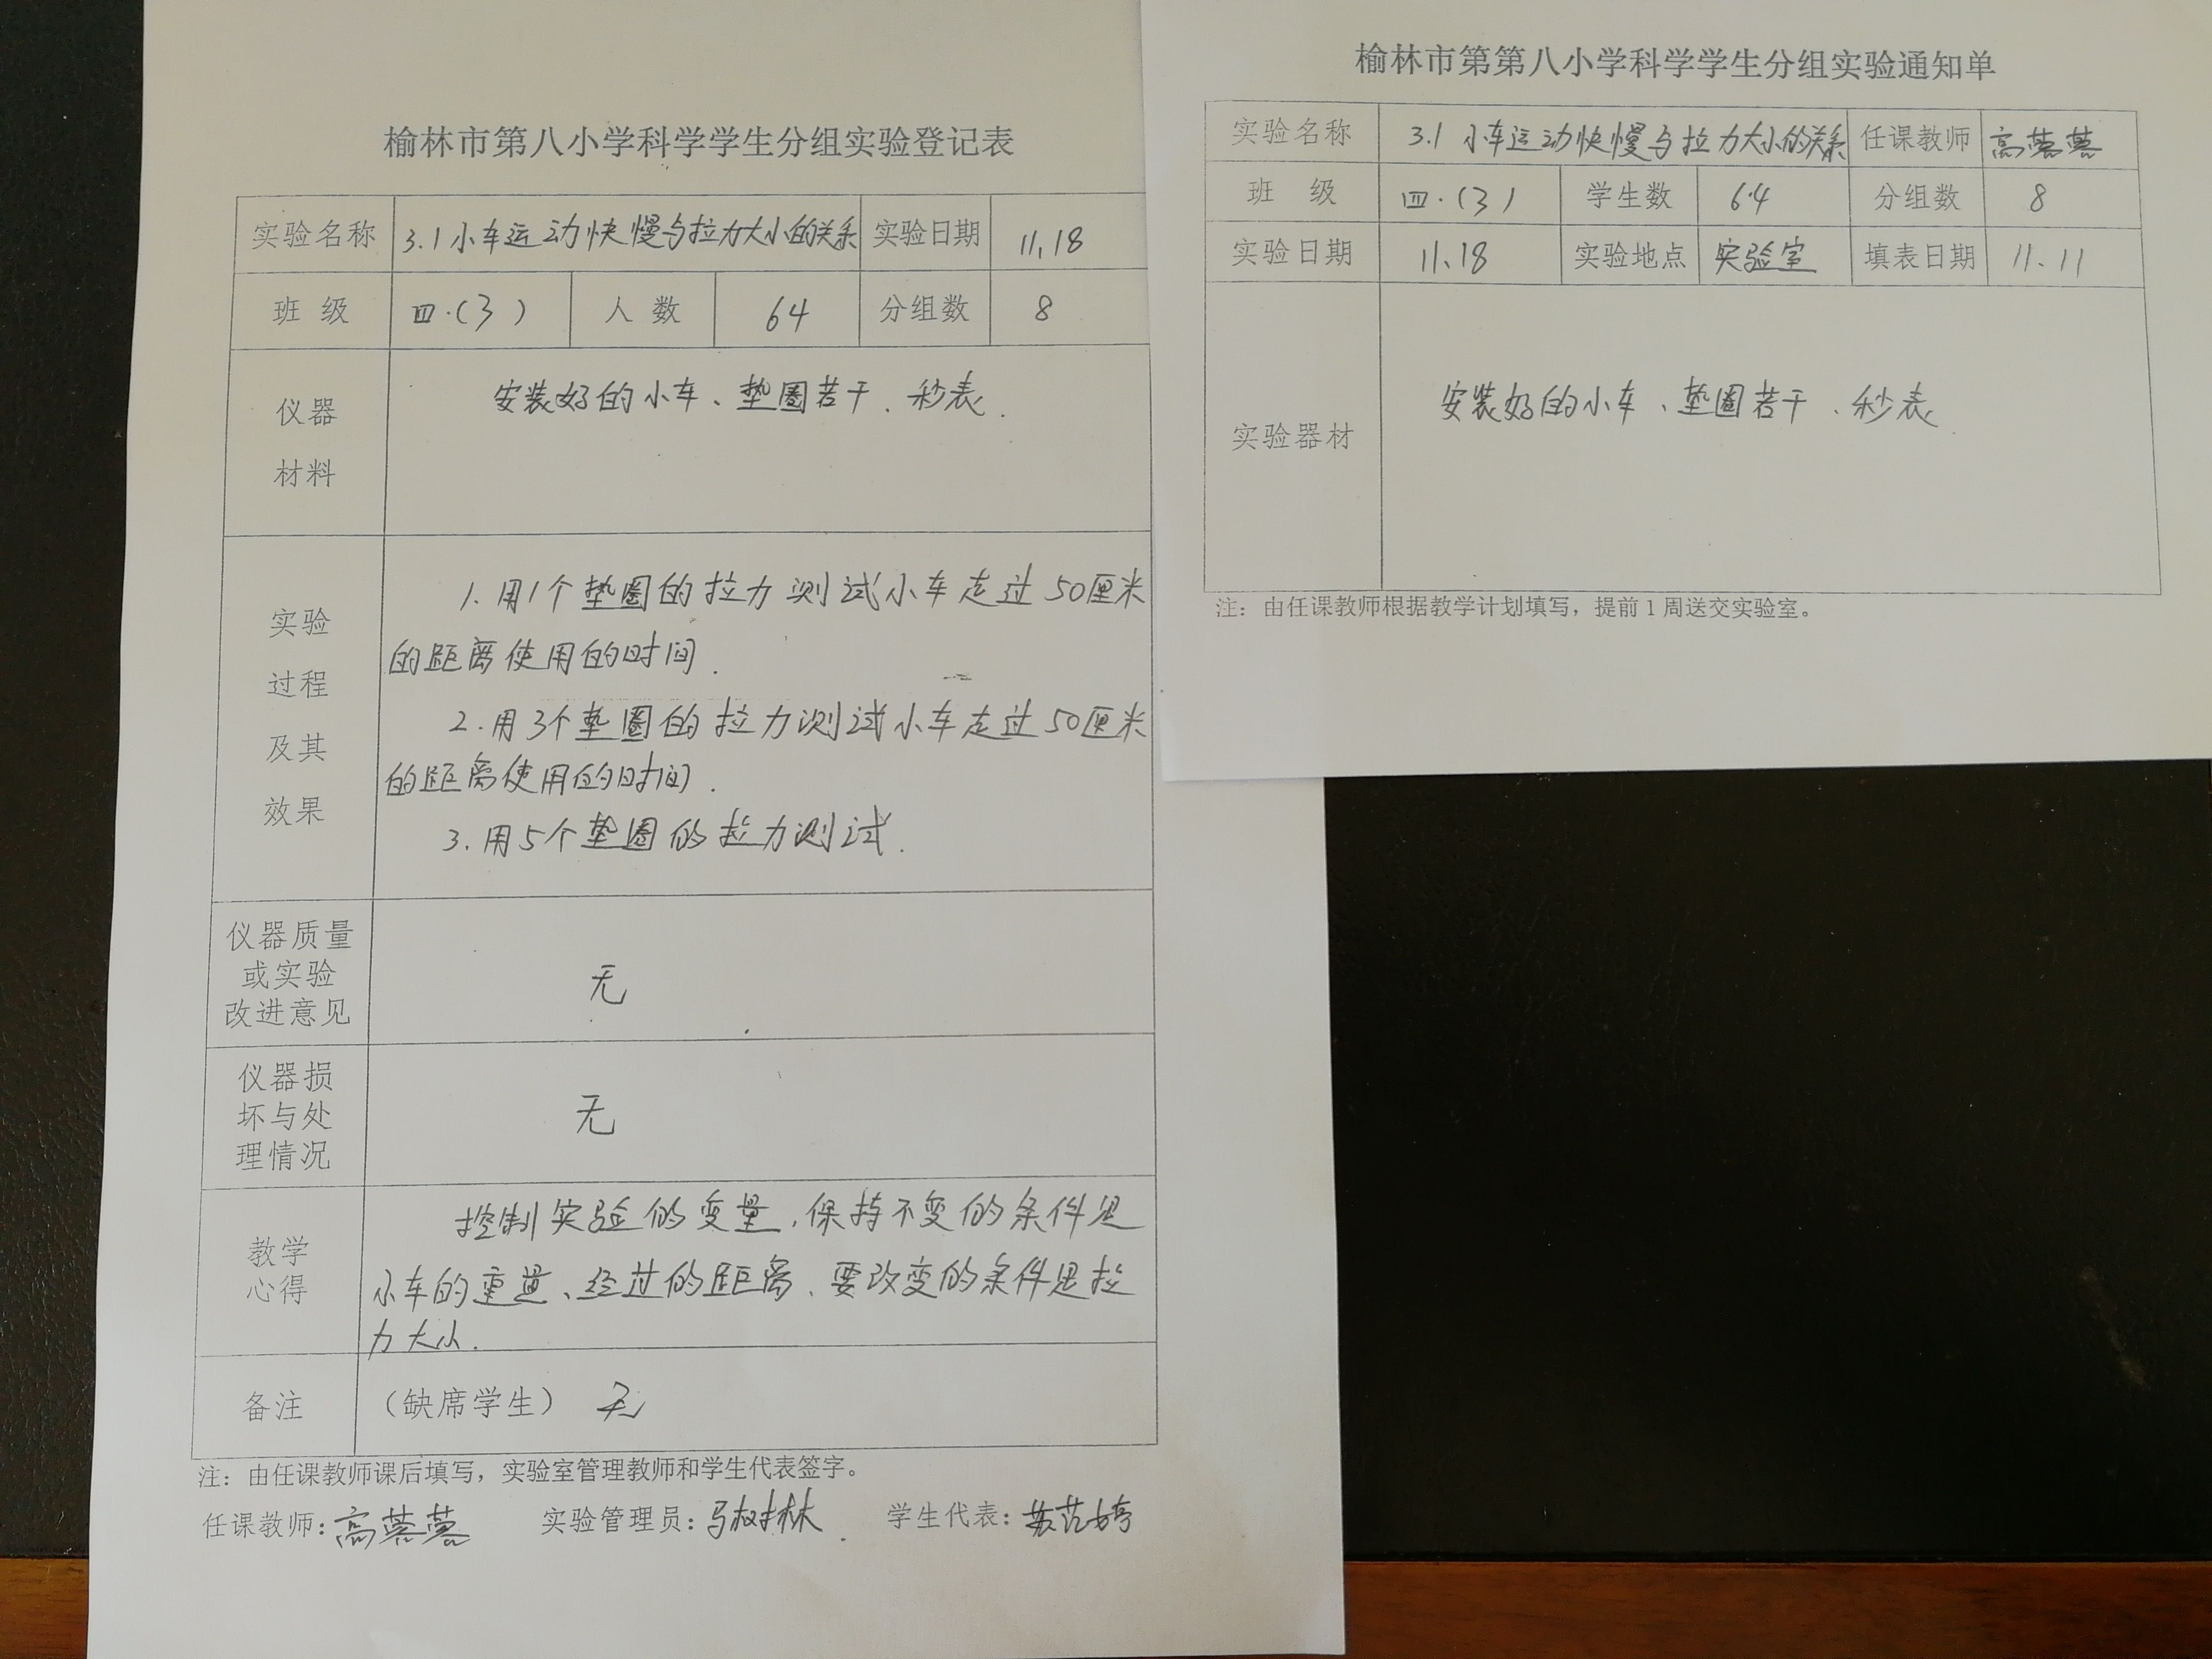 榆林市第八小学科学学生分组实验登记表
实验名称 3.1小车运动快慢与拉力大小的关系 实验日期 11.18
班 级 四.(3) 人 数 64 分组数 8
仪器
材料
安装好的小车、垫圈若干、秒表.
实验
过程
及其
效果
1.用1个垫圈的拉力测试小车走过50厘米
的距离使用的时间.
2.用3个垫圈的拉力测试小车走过50厘米
的距离使用的时间.
3.用5个垫圈的拉力测试.
仪器质量
或实验
改进意见
无
仪器损
坏与处
理情况
无
教学
心得
控制实验的变量,保持不变的条件是
小车的重量、经过的距离、要改变的条件是拉
力大小.
备注 (缺席学生) 无
注:由任课教师课后填写,实验室管理教师和学生代表签字。
任课教师: 实验管理员:马树林. 学生代表:
榆林市第第八小学科学学生分组实验通知单
实验名称 3.1 小车运动快慢与拉力大小的关系 任课教师
班 级 四.(3) 学生数 64 分组数 8
实验日期 11、18 实验地点 实验室 填表日期 11、11
实验器材
安装好的小车、垫圈若干、秒表
注:由任课教师根据教学计划填写,提前1周送交实验室。